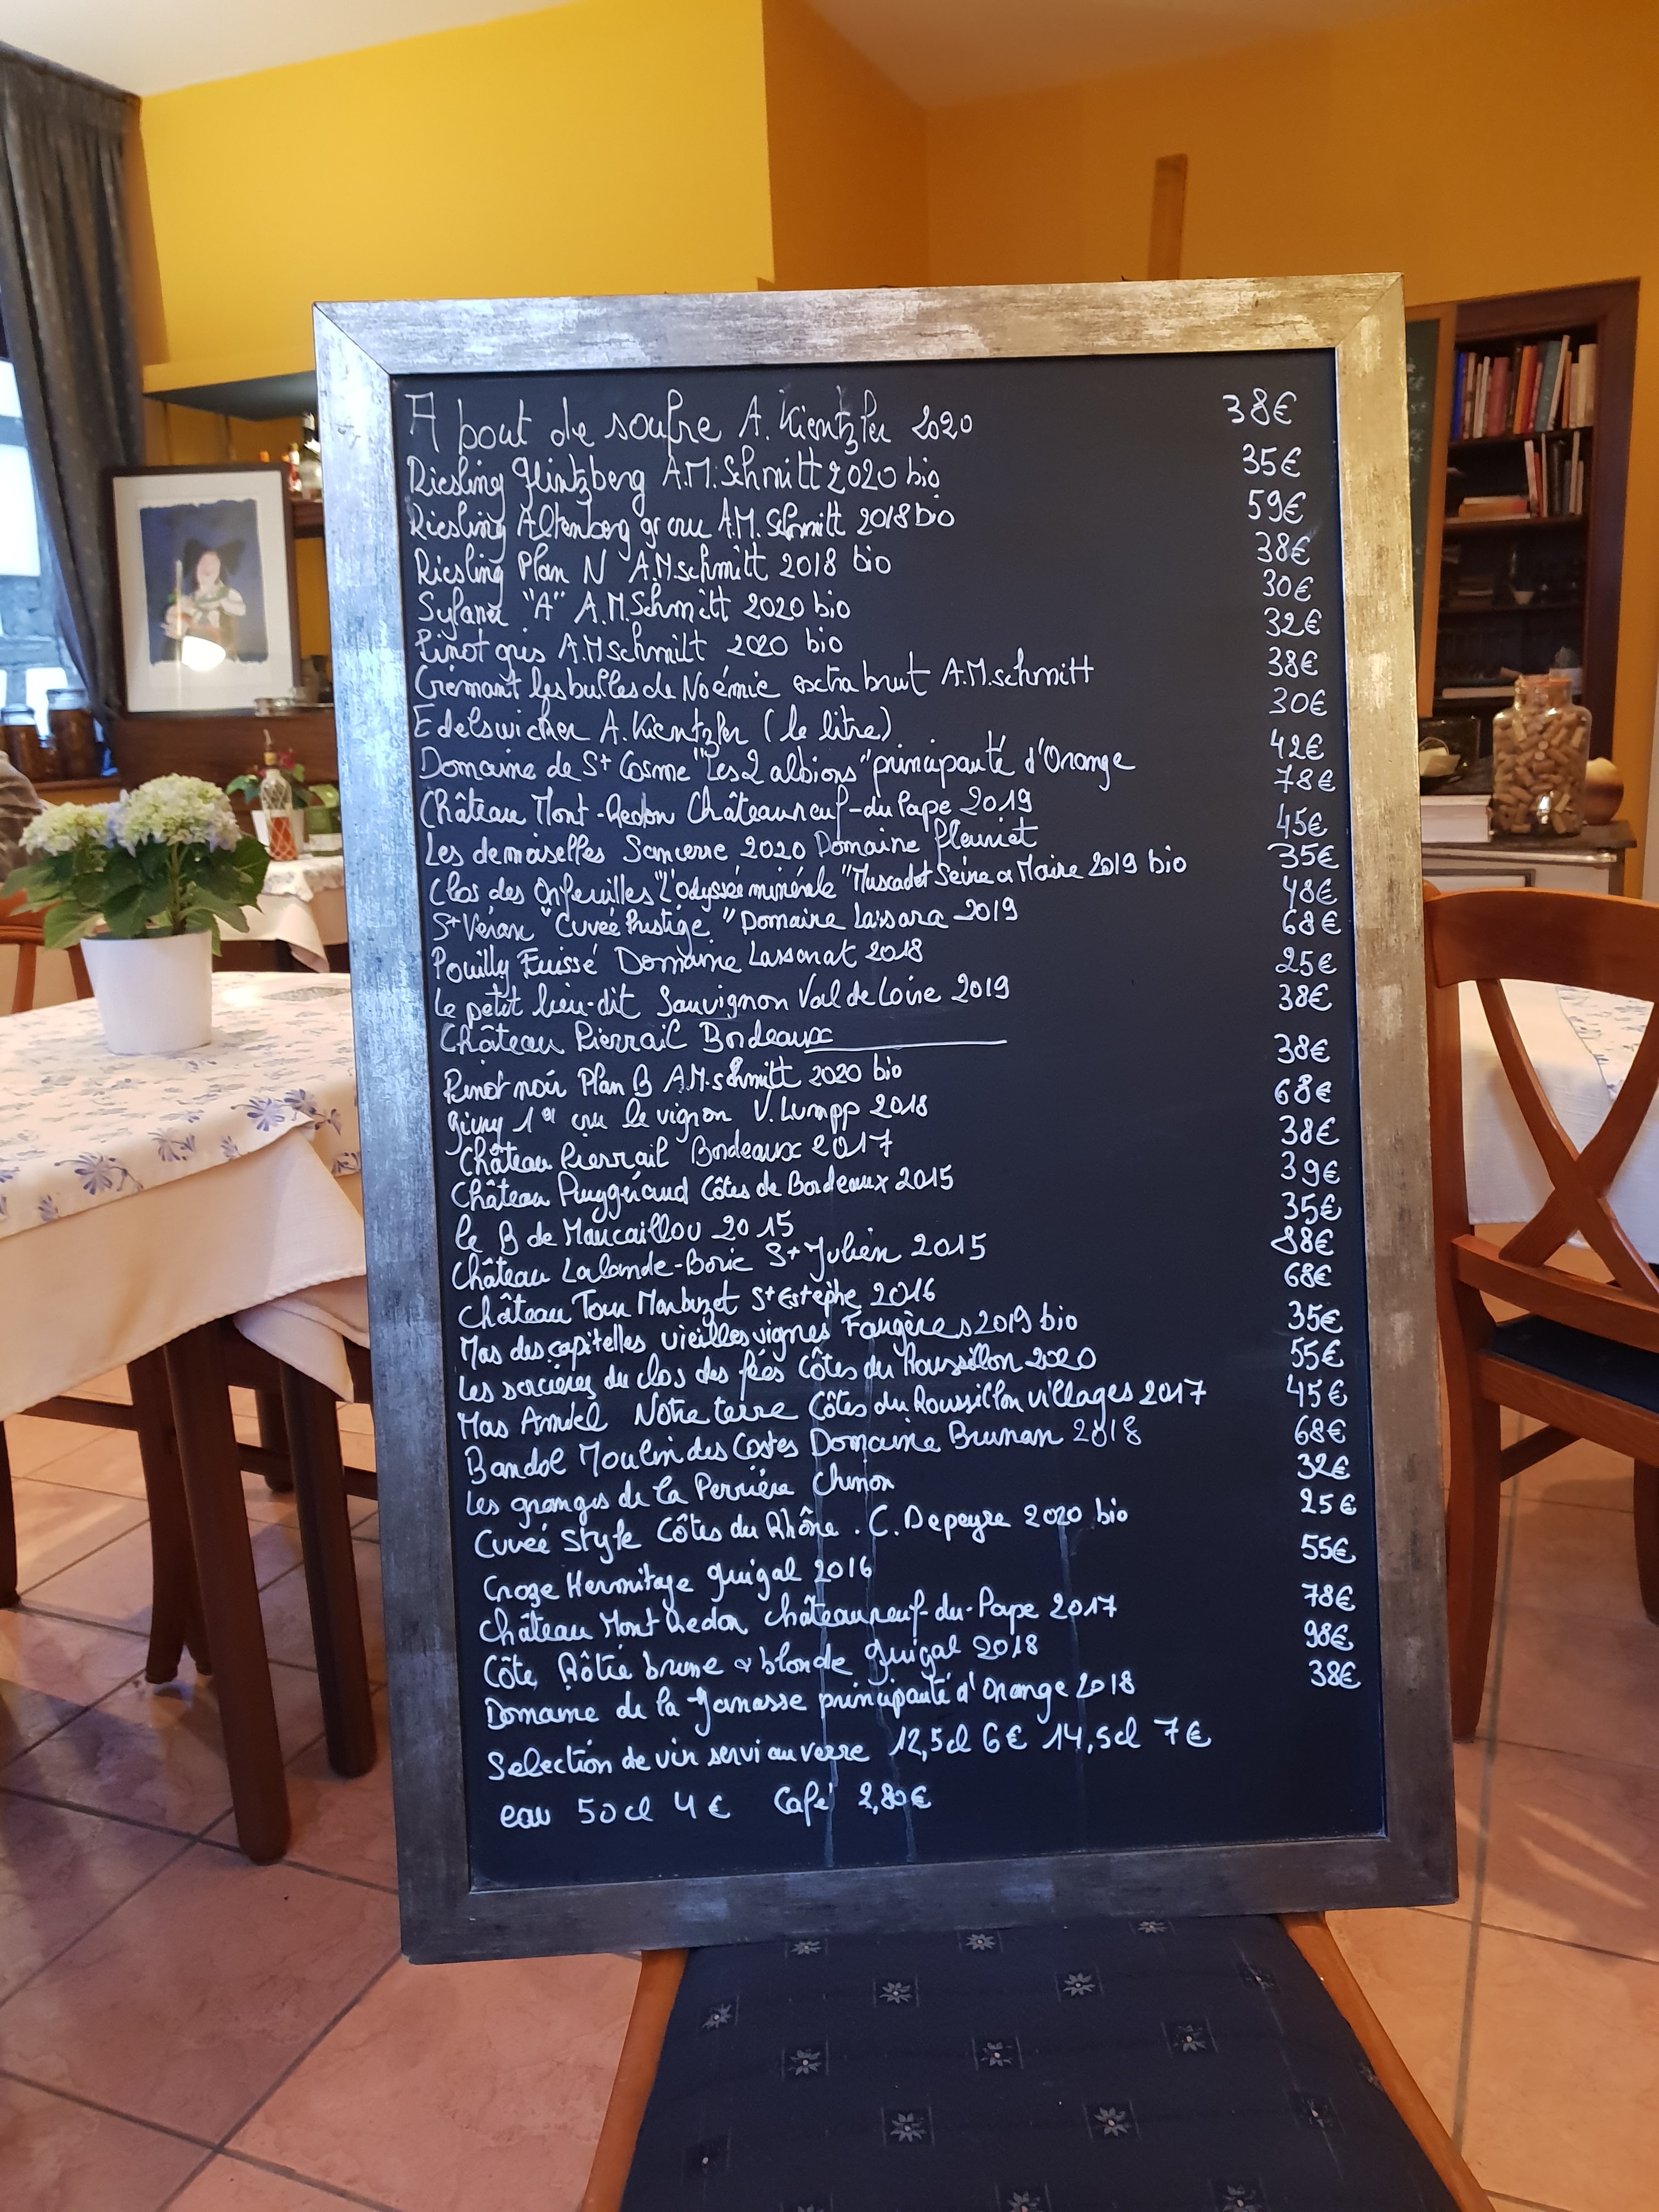 A bout de soufre A. Kientzler 2020 38€
Riesling Glintzberg A.M. Schmitt 2020 bio 35€
Riesling Altenberg gr cru A.M. Schmitt 2018 bio 59€
Riesling Plan N A.M schmitt 2018 bio 38€
Sylaner "A" A.M. Schmitt 2020 bio 30€
Pinot gris A.M schmitt 2020 bio 32€
Crémant les bulles de Noémie extra brut A.M. schmitt 38€
Edelswicher A. Kientzler (le litre) 30€
Domaine de St Cosme "Les 2 albions" principauté d'Orange 42€
Château Mont-Redon Châteauneuf-du Pape 2019 78€
Les demoiselles Sancerre 2020 Domaine 45€
Clos des Orfeuilles "L'odyssée minérale" Muscadet Sèvre a Maine 2019 bio 35€
St Véran "Cuveé Prestige" Domaine Lassara 2019 48€
Pouilly Fuissé Domaine Lassarat 2018 68€
Le petit lieu-dit Sauvignon Val de Loire 2019 25€
Château Pierrail Bordeaux 38€
Pinot noir Plan B A.M. schmitt 2020 bio 38€
Givry 1er cru le vigron V. Lumpp 2018 68€
Château Pierrail Bordeaux 2017 38€
Château Puyguéraud Côtes de Bordeaux 2015 39€
Le B de Maucaillou 2015 35€
Château Lalande-Borie St Julien 2015 88€
Château Tour Marbuzet St Estèphe 2016 68€
Mas des capitelles vieilles vignes Faugères 2019 bio 35€
Les sorcières du clos des fées Côtes du Roussillon 2020 55€
Mas Amiel Notre terre Côtes du Roussillon villages 2017 45€
Bandol Moulin des Costes Domaine Brunan 2018 68€
Les granges de la Perrière Chinon 32€
Cuveé Style Côtes du Rhône. C. Depeyre 2020 bio 25€
Croze Hermitage Guigal 2016 55€
Château Mont Redon Châteauneuf-du-Pape 2017 78€
Côte Rôtie brune & blonde Guigal 2018 98€
Domaine de la Janasse principauté d'Orange 2018 38€
Selection de vin servi au verre 12,5cl 6€ 14,5cl 7€
eau 50cl 4€ Café 2,80€